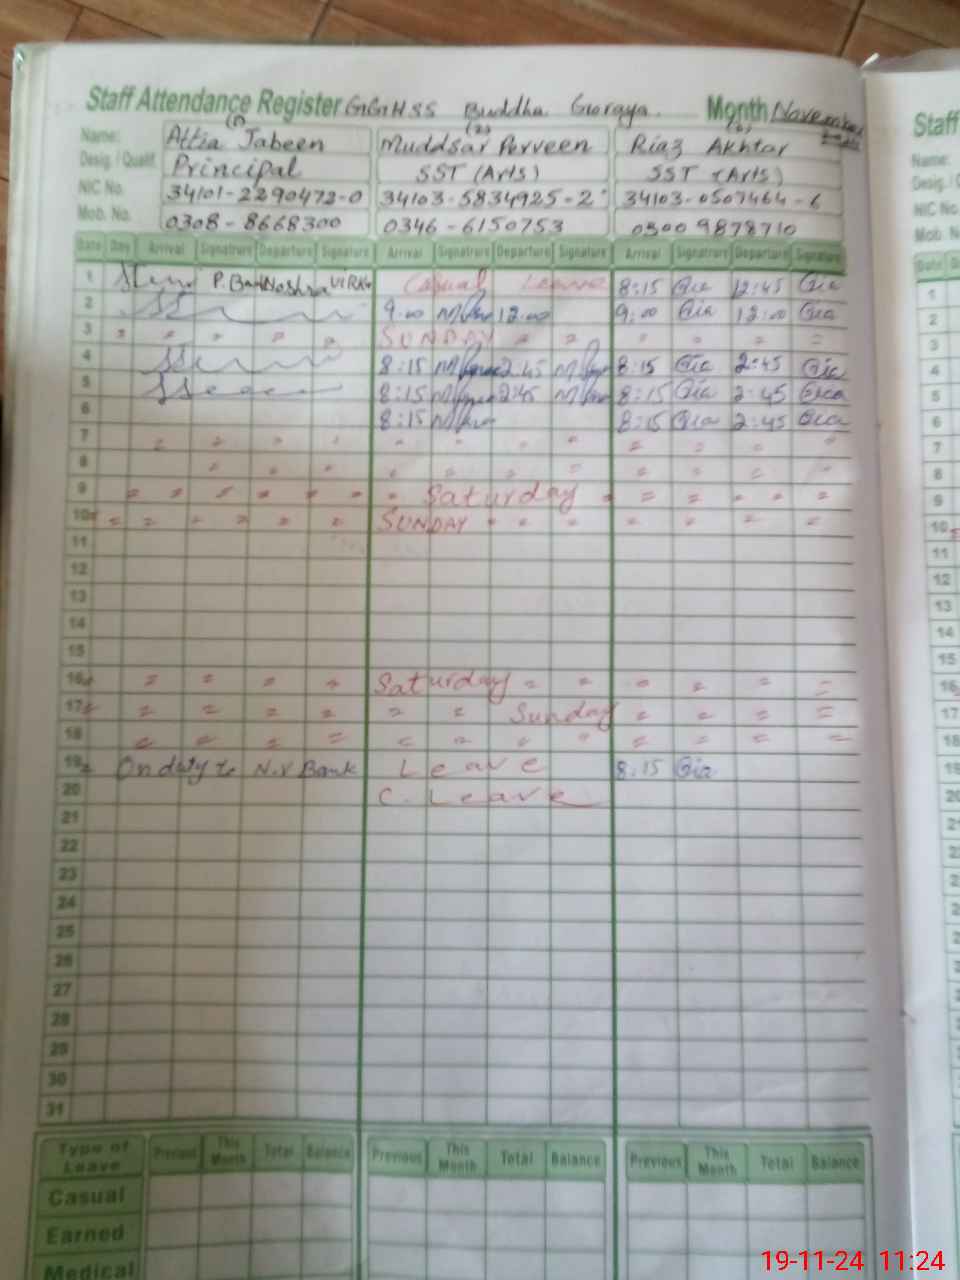 Staff Attendance Register GGHSS Buddha Goraya. Month November
Name: Attia Jabeen Muddsar Perveen Riaz Akhtar
Desig. / Qualif. Principal SST (Arts) SST (Arts)
NIC No. 34101-2290472-0 34103-5834925-2 34103-0507464-6
Mob. No. 0308-8668300 0346-6150753 0300 9878710
Date Day Arrival Signature Departure Signature Arrival Signature Departure Signature Arrival Signature Departure Signature
1 Casual Leave 8:15 12:45
2 9.00 12:00 9:00 12:00
3 SUNDAY
4 8:15 2:45 8:15 2:45
5 8:15 2:45 8:15 2:45
6 8:15 8:15 2:45
7
8
9 Saturday
10 SUNDAY
11
12
13
14
15
16 Saturday
17 Sunday
18
19 On duty to N.V Bank Leave 8:15
20 C. Leave
21
22
23
24
25
26
27
28
29
30
31
Type of Leave Previous This Month Total Balance Previous This Month Total Balance Previous This Month Total Balance
Casual
Earned
Medical
Staff
Name:
Desig. /
NIC No
Mob. N
Date
1
2
3
4
5
6
7
8
9
10
11
12
13
14
15
16
17
18
19
20
19-11-24 11:24